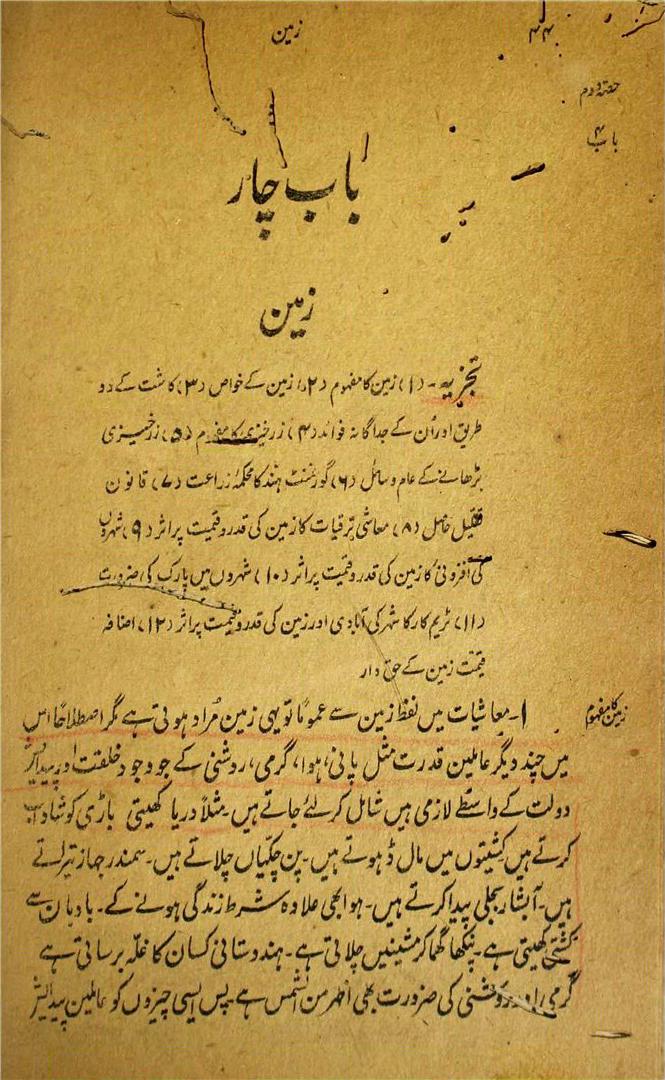 ۴۴ زمین
حصّہ دوم
باب ۴
باب چار
زمین
تجزیہ۔ (۱) زمین کا مفہوم (۲) زمین کے خواص (۳) کاشت کے دو
طریق اور اُن کے جداگانہ فوائد (۴) زرخیزی کا مفہوم (۵) زرخیزی
بڑھانے کے عام وسائل (۶) گورنمنٹ ہند کا محکمۂ زراعت (۷) قانون
تقلیل حاصل (۸) معاشی ترقیات کا زمین کی قدر و قیمت پر اثر (۹) شہروں
کی افزونی کا زمین کی قدر و قیمت پر اثر (۱۰) شہروں میں پارک کی ضرورت
(۱۱) ٹریم کار کا شہر کی آبادی اور زمین کی قدر و قیمت پر اثر (۱۲) اضافہ
قیمت زمین کے حق دار
زمین کا مفہوم
۱۔ معاشیات میں لفظ زمین سے عموماً تو یہی زمین مُراد ہوتی ہے مگر اصطلاحاً اس
میں چند دیگر عاملین قدرت مثل پانی، ہوا، گرمی، روشنی کے جو وجود خلقت اور پیدائش
دولت کے واسطے لازمی ہیں شامل کر لئے جاتے ہیں۔ مثلاً دریا کھیتی باڑی کو شاداب
کرتے ہیں کشتیوں میں مال ڈھوتے ہیں۔ پن چکّیاں چلاتے ہیں۔ سمندر جہاز تیراتے
ہیں۔ آبشار بجلی پیدا کرتے ہیں۔ ہوا بھی علاوہ شرط زندگی ہونے کے۔ بادبان سے
کشتی کھیتی ہے۔ پنکھا گھما کر مشینیں چلاتی ہے۔ ہندوستانی کسان کا غلّہ برساتی ہے
گرمی اور روشنی کی ضرورت بھی اظہر من الشمس ہے پس ایسی چیزوں کو عاملین پیدائش